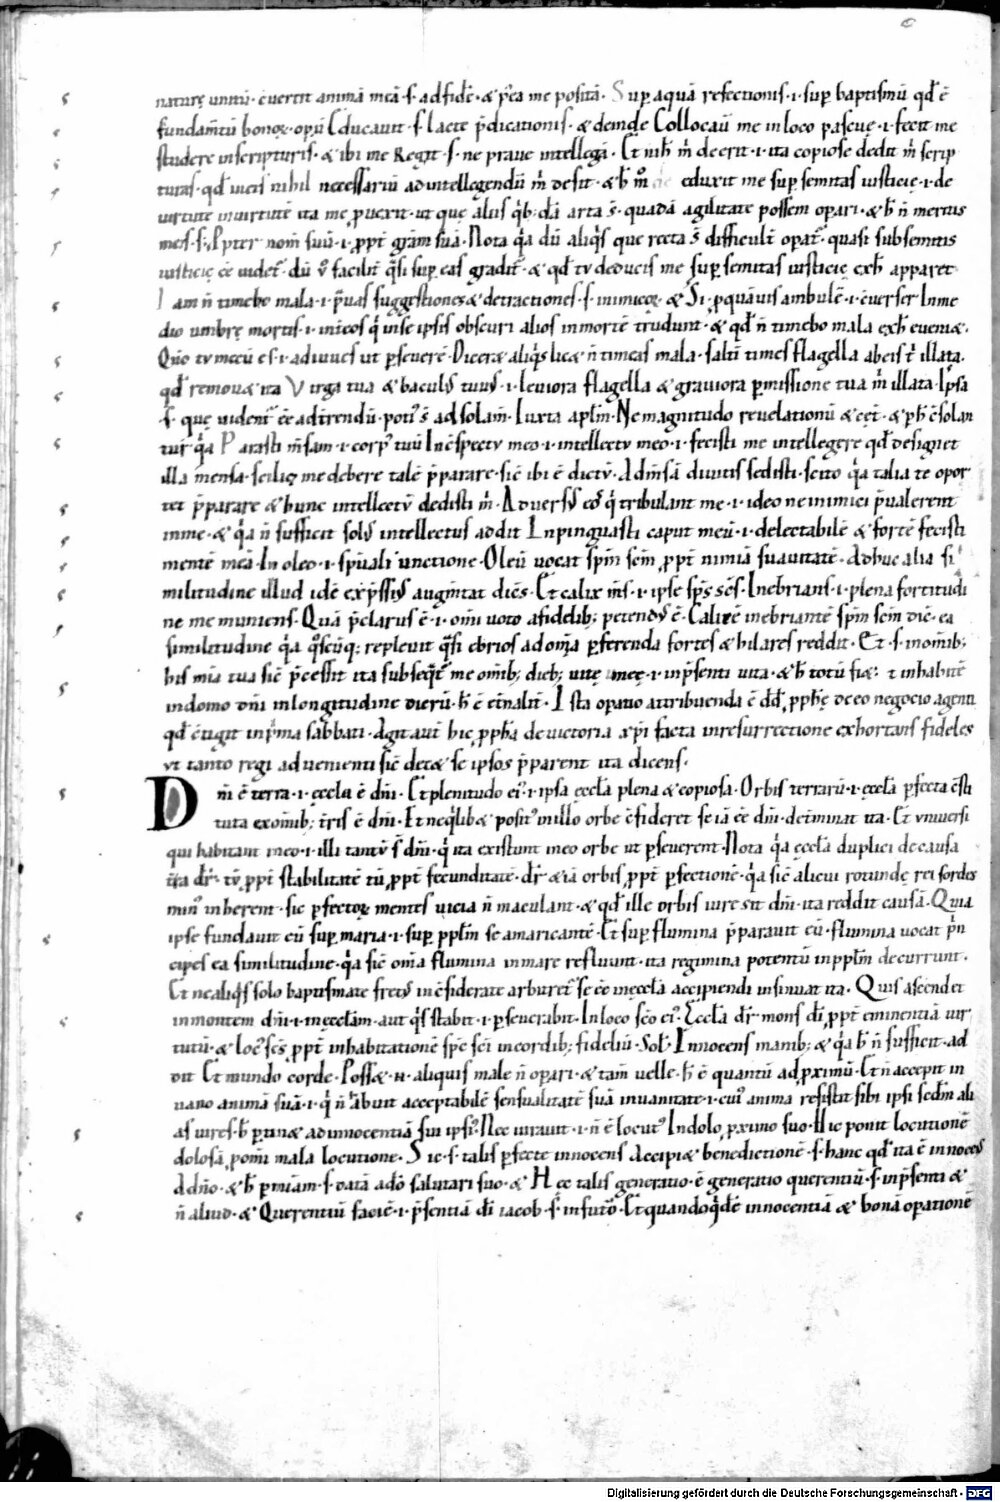 naturę unitū· c̄uertit animā meā·s̄· ad fidē· & p̄ea me positā· Sup aquā refectionis·i· sup baptismū qđ ē
fundam̄tū bonoꝝ· opū Educauit·s̄· lacte p̄dicationis· & deinde Collocauit me in loco pascuę·i· fecit me
studere in scripturis· & ibi me Regit·s̄· ne praue intellegā· Et nih̄ m̄ deerit·i· ita copiose dedit m̄ scrip
turas· qđ uicis nihil necessariū ad intellegendū m̄ desit· & h̄ m̊ eduxit me sup semitas iusticię·i· de
uirtute in uirtutē ita me puexit· ut quę aliis qͥb; dā arta s̄· quadā agilitate possem opari· & h̄ n̄ meritis
meis·s̄· Ppter nom̄ suū·i· ꝓpt̄ gr̄am suā· Nota qͥa dū aliqͥs que recta s̄ difficult̄ opat̄· quasi sub semitis
iusticię ēe uidet̄· dū ů facilit̄ qͣsi sup eas gradit̄· & qđ tu deducis me sup semitas iusticię exh̄ apparet·
Iam n̄ timebo mala·i· p̄uas suggestiones & detractiones·s̄· inimicoꝝ· & Si ꝓquāuis ambulē·i· c̄uerser In me
dio umbrę mortis·i· int̄ eos qͥ in se ipsis obscuri alios in mortē trudunt· & qđ n̄ timebo mala exh̄ eueni&·
Qm̄ tu mecū es·i· adiuues ut pseuerē· Dicer& aliqͥs lic& n̄ timeas mala· saltī times flagella ab eis t̄ illata·
qđ remou& ita Virga tua & baculꝰ tuus·i· leuiora flagella & grauiora pmissione tua m̄ illata· Ipsa
s̄· quę uident̄ ēe adt̄rendū· potiꝰ s̄ ad solam̄· Iuxta aplm̄· Ne magnitudo reuelationū & cęt̄· & ph̄ c̄solan
tur qͥa Parasti m̄sam·i· corpꝰ tuū In c̄spectu meo·i· intellectu meo·i· fecisti me intellegere qđ designet
illa mensa· scilic& me debere talē p̄parare· sic̄ ibi ē dictū· Ad m̄sā diuitis sedisti· scito qͥa talia te opor
tet p̄parare & hunc intellectū dedisti m̄· Aduersꝰ eos qͥ tribulant me·i· ideo ne inimici p̄ualerent
in me· & qͥa n̄ sufficit solꝰ intellectus addit Inpinguasti caput meū·i· delectabilē & fortē fecisti
mentē meā· In oleo·i· sp̄uali unctione· Oleū uocat spm̄ scm̄ ꝓpt̄ nimiā suauitatē· Adhuc alia si
militudine illud idē exp̄ssiꝰ augm̄tat dicēs· Et calix m̄s·i· ipse sps̄ scs̄· Inebrians·i· plena fortitudi
ne me muniens· Quā p̄clarus ē·i· om̄i uoto a fidelib; petendꝰ ē· Calicē inebriantē spm̄ scm̄ dic̄· ea
similitudine qͥa qͦscūq; repleuit qͣsi ebrios ad om̄a pferenda fortes & hilares reddit· Et·s̄· in om̄ib;
his mīa tua sic̄ p̄cessit ita subseqͣt̄ me om̄ib; dieb; uitę meę·i· in p̄senti uita· & h̄ totū fi&· ī inhabitē
in domo dn̄i in longitudine dierū· h̄ ē et̄nalit̄· Ista opatio attribuenda ē dđ ꝓph̄ę de eo negocio agenti
qđ c̄tigit in p̄ma sabbati· Agit aut̄ hic ꝓph̄a de uictoria xp̄i facta in resurrectione exhortans fideles
ut tanto regi aduenienti sic̄ dec& se ipsos p̄parent ita dicens·
Dn̄i ē terra·i· ęccl̄a ē dn̄i· Et plenitudo eiꝰ·i· ipsa ęccl̄a plena & copiosa· Orbis terrarū·i· ęccl̄a pfecta c̄sti
tuta ex om̄ib; t̄ris ē dn̄i· Et ne qͥlib& positꝰ in illo orbe c̄fideret se iā ēe dn̄i· det̄minat ita· Et uniuersi
qui habitant in eo·i· illi tantū s̄ dn̄i· qͥ ita existunt in eo orbe ut pseuerent· Nota qͥa ęccl̄a duplici de causa
t̄ra dr̄· tū ꝓpt̄ stabilitatē tū ꝓpt̄ fecunditatē· dr̄ & iā orbis ꝓpt̄ pfectionē· qͥa sic̄ alicui rotundę rei sordes
minꝰ inherent· sic pfectoꝝ mentes uicia n̄ maculant· & qđ ille orbis iure sit dn̄i· ita reddit causā· Quia
ipse fundauit eū sup maria·i· sup pplm̄ se amaricantē· Et sup flumina p̄parauit eū· flumina uocat p̄n
cipes ea similitudine· qͥa sic̄ om̄a flumina in mare refluunt· ita regimina potentū in pplm̄ decurrunt·
Et ne aliqͥs solo baptismate fretꝰ in c̄fiderate arbitret̄ se ēe in ęccl̄a accipiendi insinuat ita· Quis ascendet
in montem dn̄i·i· in ęccl̄am· aut qͥs stabit·i· pseuerabit· In loco sc̄o eiꝰ· Eccl̄a dr̄ mons dī ꝓpt̄ eminentiā uir
tutū· & locꝰ scs̄ ꝓpt̄ inhabitationē spc̄ sc̄i in cordib; fideliū· Sol̄· Innocens manib; & qͥa h̄ n̄ sufficit· ad
dit Et mundo corde· Poss& ·n· aliquis male n̄ opari· & tam̄ uelle· h̄ ē quantū ad ꝓximū· Et n̄ accepit in
uano animā suā·i· qͥ n̄ t̄buit acceptabilē sensualitatē suā in uanitate·i· cuiꝰ anima resistit sibi ipsi sedm̄ ali
as uires· h̄ ptin& ad innocentiā sui ipsiꝰ· Nec iurauit·i· n̄ ē locutꝰ In dolo ꝓximo suo· Hic ponit locutionē
dolosā ꝓ om̄i mala locutione· Sic·s̄· talis pfecte innocens Accipi& benedictionē·s̄· hanc qđ ita ē innocēs
A dn̄o· & h̄ p mīam·s̄· datā a dō salutari suo· & Hec talis generatio·ē· generatio querentiū·s̄· in p̄senti &
n̄ aliud· & Querentiū faciē·i· p̄sentiā dī iacob·s̄· in futꝰo· Et quandoqͥdē innocentiā & bonā opationē
Digitalisierung gefördert durch die Deutsche Forschungsgemeinschaft · DFG